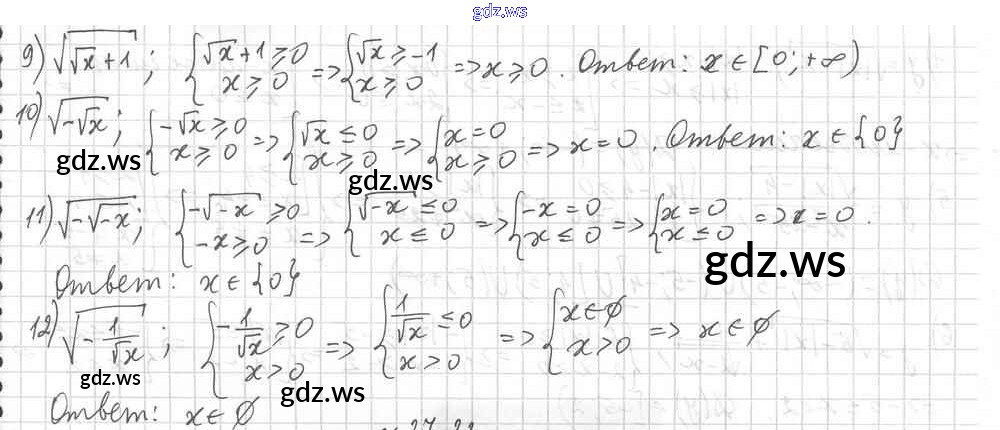 gdz.ws
9) √(√x + 1) ; { √x + 1 ≥ 0 ; x ≥ 0 => { √x ≥ -1 ; x ≥ 0 => x ≥ 0 . Ответ: x ∈ [0; +∞)
10) √(-√x) ; { -√x ≥ 0 ; x ≥ 0 => { √x ≤ 0 ; x ≥ 0 => { x = 0 ; x ≥ 0 => x = 0 . Ответ: x ∈ {0}
gdz.ws gdz.ws
11) √(-√(-x)) ; { -√(-x) ≥ 0 ; -x ≥ 0 => { √(-x) ≤ 0 ; x ≤ 0 => { -x = 0 ; x ≤ 0 => { x = 0 ; x ≤ 0 => x = 0 .
gdz.ws
Ответ: x ∈ {0}
12) √(-1/√x) ; { -1/√x ≥ 0 ; x > 0 => { 1/√x ≤ 0 ; x > 0 => { x ∈ ∅ ; x > 0 => x ∈ ∅
gdz.ws gdz.ws
Ответ: x ∈ ∅